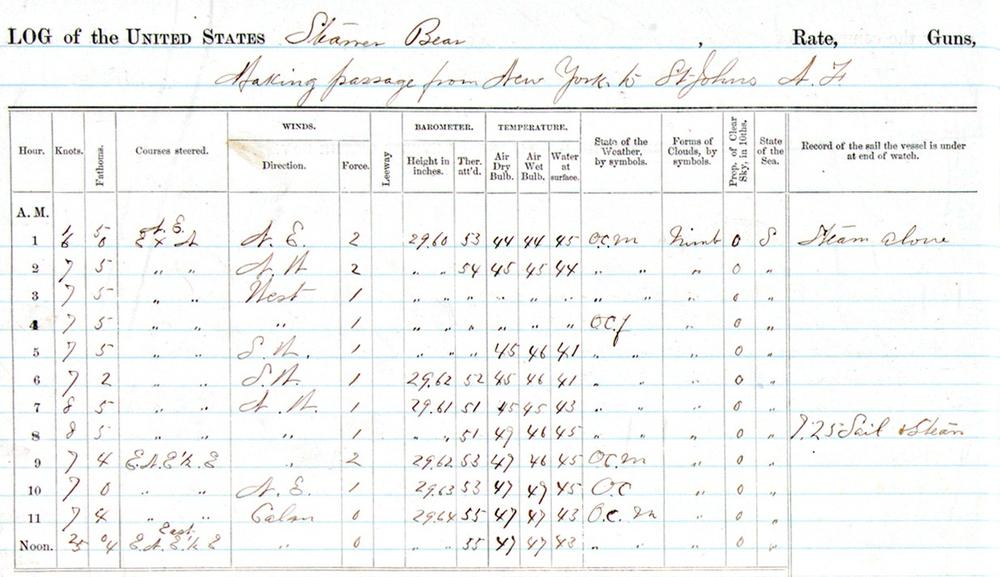 LOG of the UNITED STATES Steamer Bear , Rate, Guns,
Making passage from New York to St Johns N. F.
Hour. Knots. Fathoms. Courses steered. WINDS. Direction. Force. Leeway BAROMETER. Height in inches. Ther. att'd. TEMPERATURE. Air Dry Bulb. Air Wet Bulb. Water at surface. State of the Weather, by symbols. Forms of Clouds, by symbols. Prop. of Clear Sky, in 10ths. State of the Sea. Record of the sail the vessel is under at end of watch.
A. M.
1 5 N. E. 2 29.60 53 44 44 45 O.C.M Nimb 0 S Steam alone
2 7 5 " " N. W. 2 " " 54 45 45 44 " " " 0 "
3 7 5 " " West 1 " " " " " " " " " 0 "
4 7 5 " " " 1 " " " " " " O.C.f " 0 "
5 7 5 " " S. W. 1 " " " 45 46 41 " " " 0 "
6 7 2 " " S. W. 1 29.62 52 45 46 41 " " " 0 "
7 8 5 " " N. W. 1 29.61 51 45 45 43 " " " 0 "
8 8 5 " " " 1 " " 51 49 46 45 " " " 0 " 7.25 Sail & Steam
9 7 4 E.N.E ½ E " 2 29.62 53 47 46 45 O.C.M " 0 "
10 7 0 " " N. E. 1 29.63 53 47 47 45 O.C " 0 "
11 7 4 " " Calm 0 29.64 55 47 47 43 O.C. M " 0 "
East
Noon. E.N.E ½ E " 0 55 47 47 43 " " " 0 "